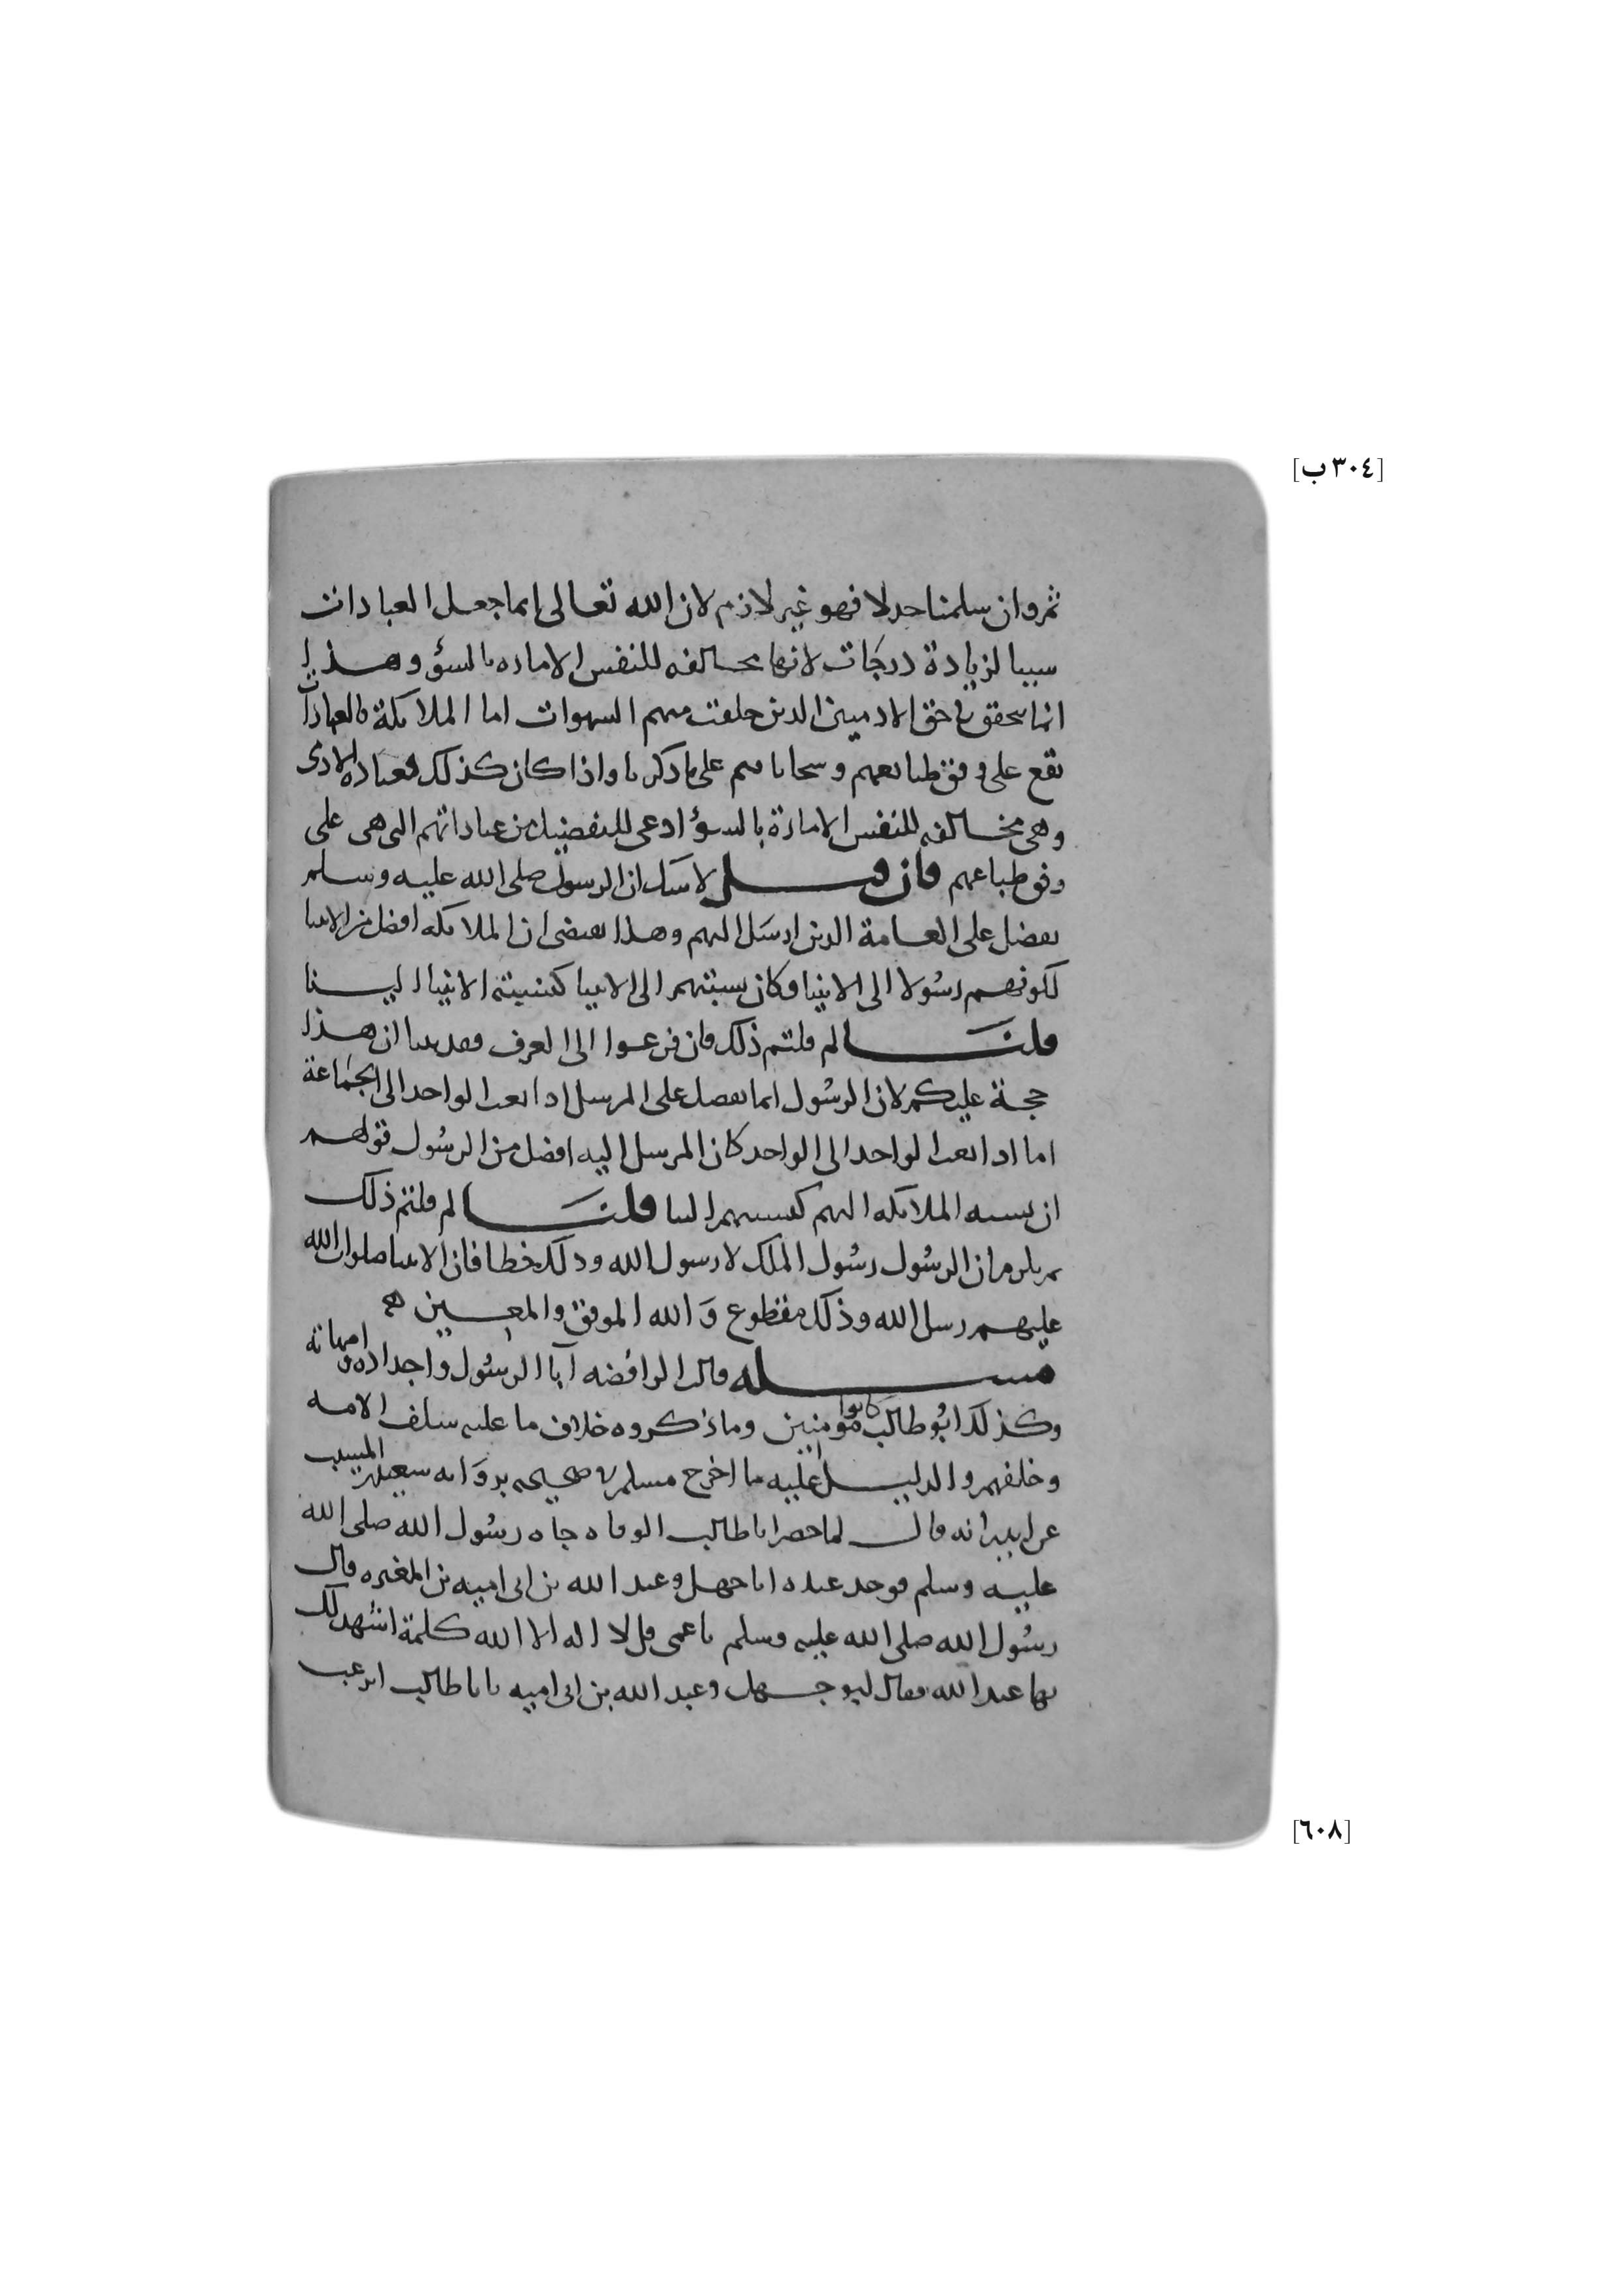 [٣٠٤ ب]
ثم وان سلمنا جدلا فهو غير لازم لان الله تعالى انما جعل العبادات
سببا لزيادة درجات لانها مخالفه للنفس الاماره بالسؤ وهذا
انما يتحقق في حق الادميين الذين خلقت فيهم الشهوات اما الملايكة فالعبادات
تقع على وفق طبايعهم وسجاياهم على ما ذكرنا واذا كان كذلك فعباده الادمى
وهى مخالفه للنفس الامارة بالسؤ ادعى للتفضيل من عباداتهم التى هى على
وفق طباعهم فان قيل لا شك ان الرسول صلى الله عليه وسلم
يفضل على العامة الذين ارسل اليهم وهذا يقتضى ان الملايكه افضل من الانبيا
لكونهم رسولا الى الانبيا وكان نسبتهم الى الانبيا كنسبة الانبيا الينا
قلنا لم قلتم ذلك فان فزعوا الى العرف فقد بينا ان هذا
حجة عليكم لان الرسول انما يفضل على المرسل اذا بعث الواحد الى الجماعة
اما اذا بعث الواحد الى الواحد كان المرسل اليه افضل من الرسول قولهم
ان نسبه الملايكه اليهم كنسبتهم الينا قلنا لم قلتم ذلك
ثم يلزم ان الرسول رسول الملك لا رسول الله وذلك خطا فان الانبيا صلوات الله
عليهم رسل الله وذلك مقطوع والله الموفق والمعين
مسله قالت الرافضه آبا الرسول واجداده وامهاته
وكذلك ابو طالب كانوا مومنين وما ذكروه خلاف ما عليه سلف الامه
وخلفهم والدليل عليه ما اخرج مسلم في صحيحه بروايه سعيد بن المسيب
عن ابيه انه قال لما حضر ابا طالب الوفاه جاه رسول الله صلى الله
عليه وسلم فوجد عنده ابا جهل وعبد الله بن ابى اميه بن المغيره فقال
رسول الله صلى الله عليه وسلم يا عمى قل لا اله الا الله كلمة اشهد لك
بها عند الله فقال ابو جهل وعبد الله بن ابى اميه يا با طالب اترغب
[٦٠٨]